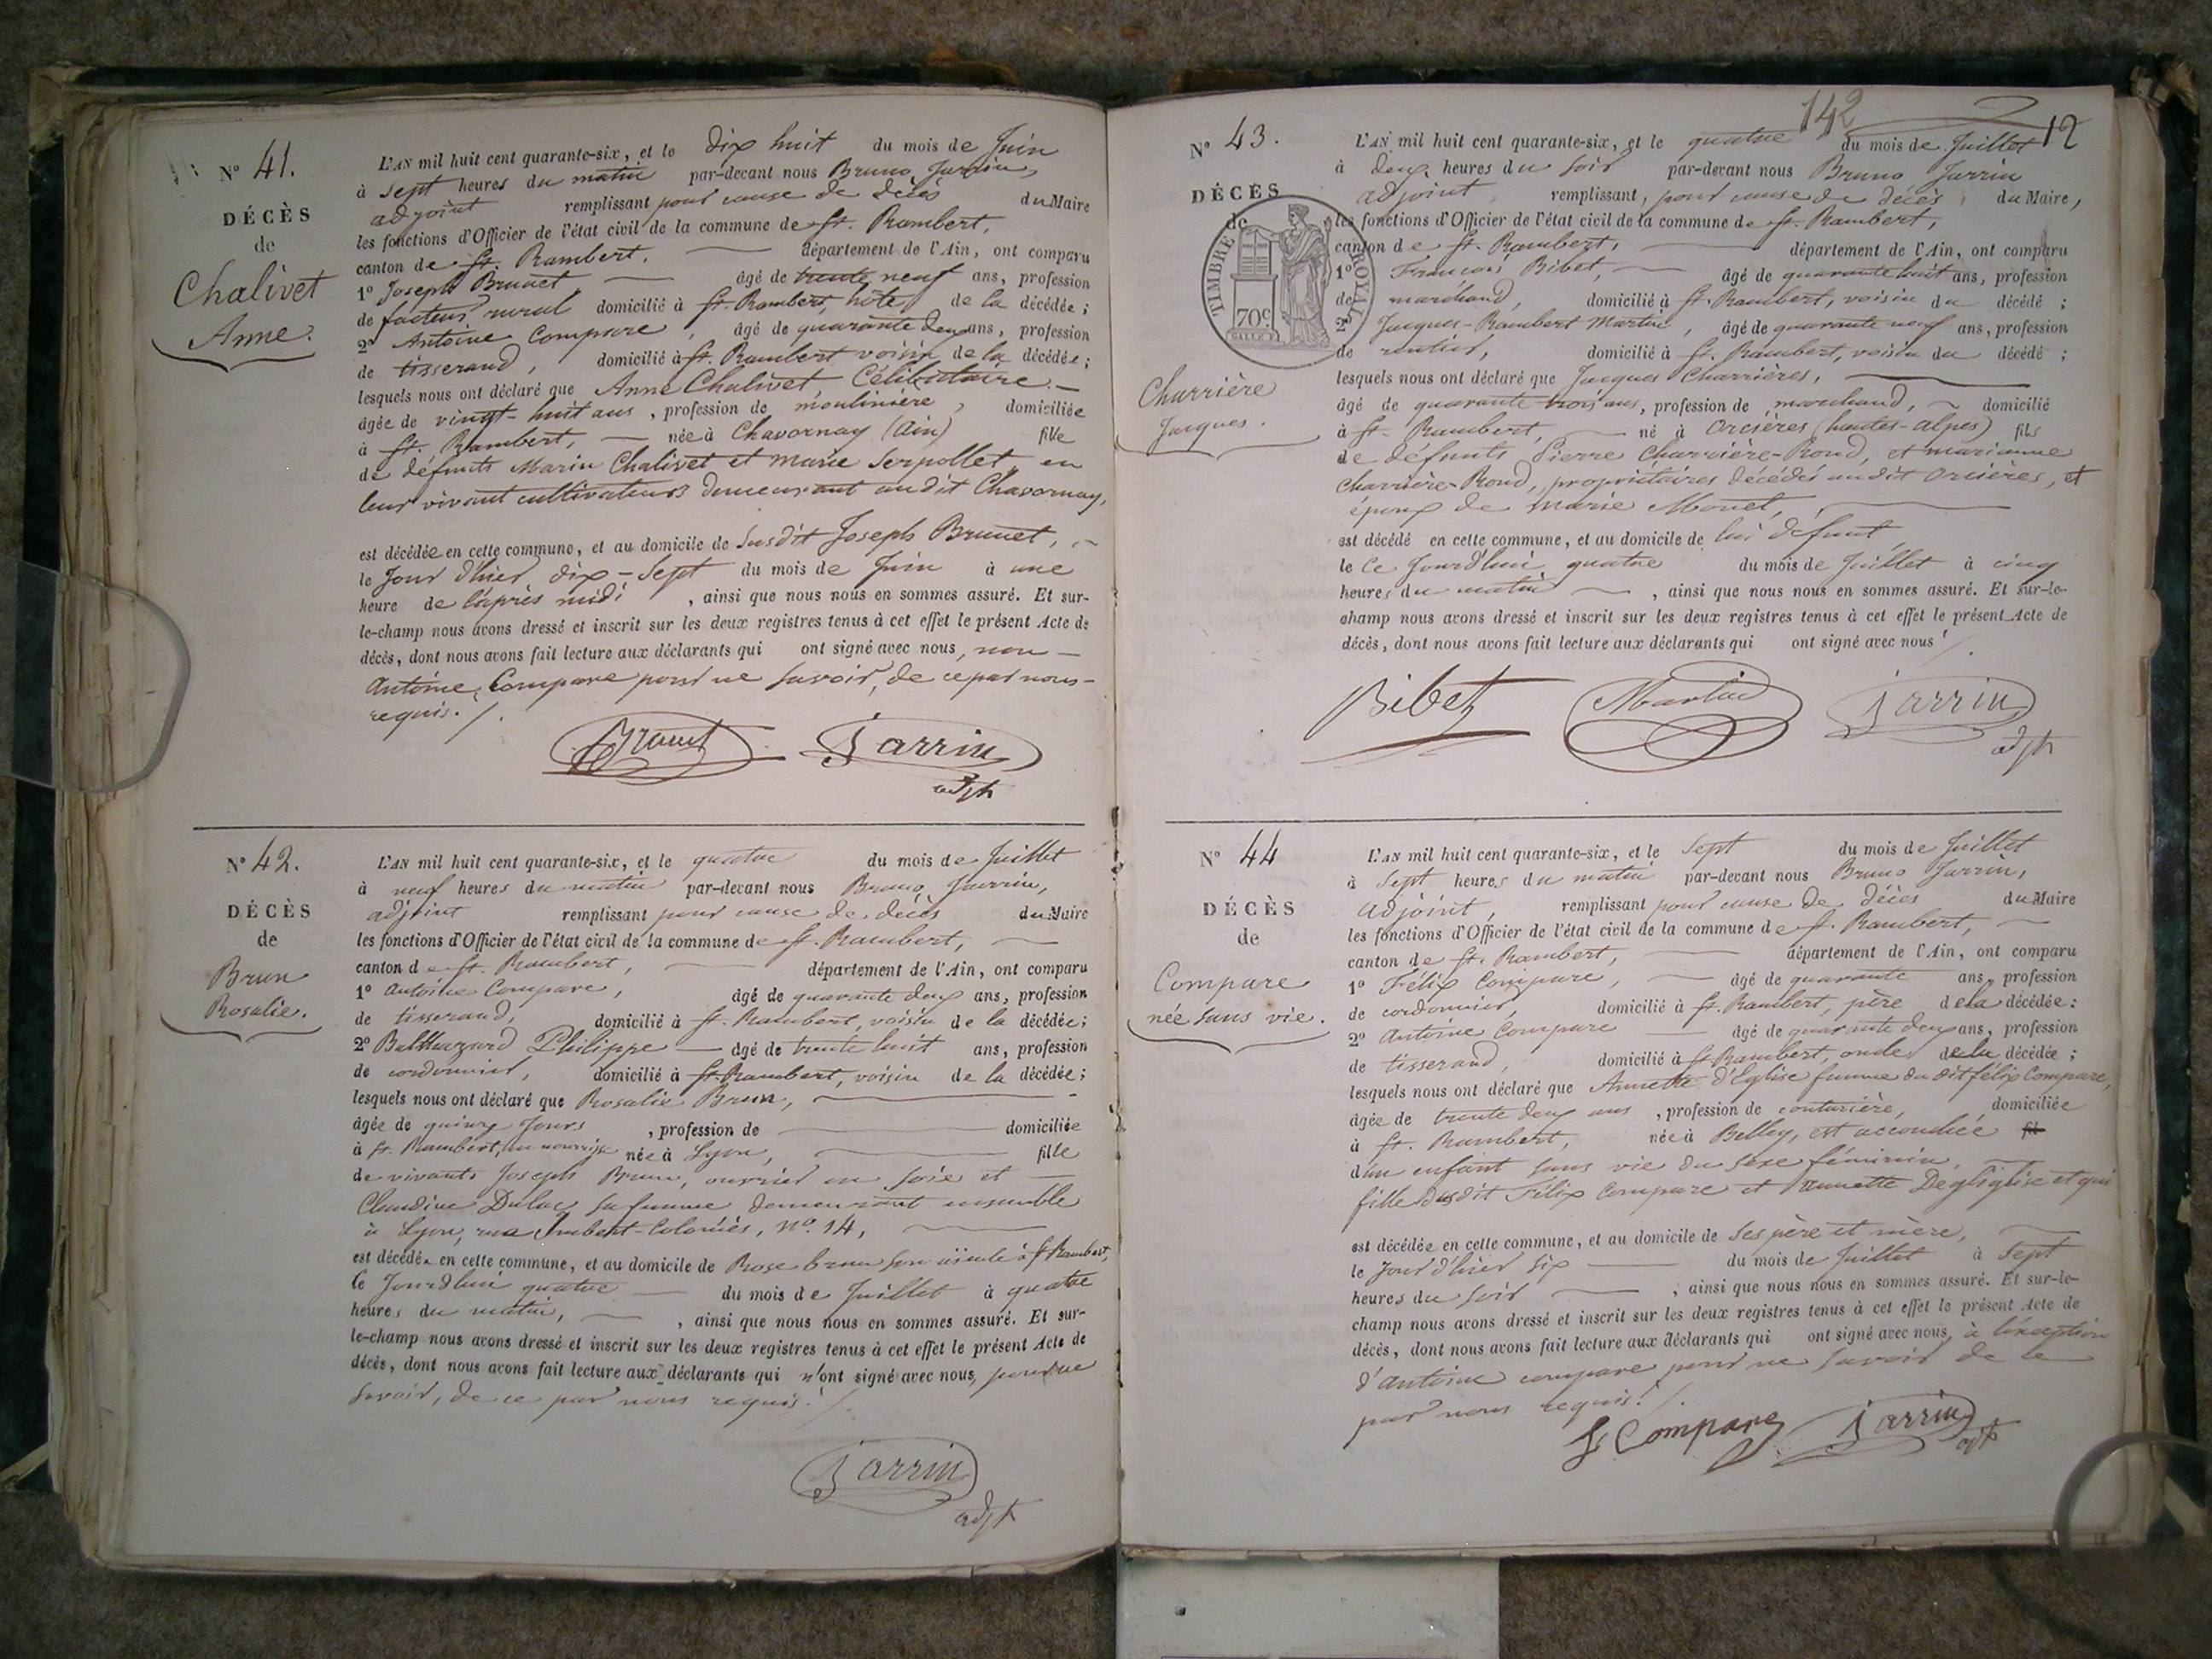 N° 41.
DÉCÈS
de
Chalivet
Anne.
L'AN mil huit cent quarante-six, et le dix huit du mois de Juin
à sept heures du matin par-devant nous Bruno Jarrin,
adjoint remplissant pour cause de décès du Maire
les fonctions d'Officier de l'état civil de la commune de St. Rambert,
canton de St. Rambert. département de l'Ain, ont comparu
1° Joseph Brunet, âgé de trente neuf ans, profession
de facteur rural domicilié à St. Rambert, hôte de la décédée ;
2° Antoine Compare, âgé de quarante deux ans, profession
de tisserand, domicilié à St. Rambert voisin de la décédée ;
lesquels nous ont déclaré que Anne Chalivet Célibataire.
âgée de vingt-huit ans, profession de moulinière, domiciliée
à St. Rambert, née à Chavornay (Ain) fille
de défunts Marin Chalivet et Marie Serpollet, en
leur vivant cultivateurs demeurant audit Chavornay,
est décédée en cette commune, et au domicile de susdit Joseph Brunet,
le Jour d'hier dix-sept du mois de Juin à une
heure de l'après midi, ainsi que nous nous en sommes assuré. Et sur-
le-champ nous avons dressé et inscrit sur les deux registres tenus à cet effet le présent Acte de
décès, dont nous avons fait lecture aux déclarants qui ont signé avec nous, non
Antoine Compare pour ne savoir, de ce par nous
requis. /.
Brunet Jarrin
adjt
N° 42.
DÉCÈS
de
Brun
Rosalie.
L'AN mil huit cent quarante-six, et le quatre du mois de Juillet
à neuf heures du matin par-devant nous Bruno Jarrin,
adjoint remplissant pour cause de décès du Maire
les fonctions d'Officier de l'état civil de la commune de St. Rambert,
canton de St. Rambert, département de l'Ain, ont comparu
1° Antoine Compare, âgé de quarante deux ans, profession
de tisserand, domicilié à St. Rambert, voisin de la décédée ;
2° Balthazard Philippe âgé de trente huit ans, profession
de cordonnier, domicilié à St. Rambert, voisin de la décédée ;
lesquels nous ont déclaré que Rosalie Brun,
âgée de quinze Jours, profession de domiciliée
à St. Rambert, en nourrice née à Lyon, fille
de vivants Joseph Brun, ouvrier en soie et
Claudine Dulac sa femme demeurant ensemble
à Lyon, rue Imbert-Colomès, N°. 14,
est décédée en cette commune, et au domicile de Rose brun son aïeule à St Rambert,
le Jourd'hui quatre du mois de Juillet à quatre
heures du matin, ainsi que nous nous en sommes assuré. Et sur-
le-champ nous avons dressé et inscrit sur les deux registres tenus à cet effet le présent Acte de
décès, dont nous avons fait lecture aux déclarants qui n'ont signé avec nous, pour ne
savoir, de ce par nous requis. /.
Jarrin
adjt
142
2
12
N° 43.
DÉCÈS
de
TIMBRE ROYAL
70c
Charrière
Jacques.
L'AN mil huit cent quarante-six, et le quatre du mois de Juillet
à deux heures du soir par-devant nous Bruno Jarrin
adjoint, remplissant, pour cause de décès, du Maire,
les fonctions d'Officier de l'état civil de la commune de St. Rambert,
canton de St. Rambert, département de l'Ain, ont comparu
1° François Bibet, âgé de quarante huit ans, profession
de marchand, domicilié à St. Rambert, voisin du décédé ;
2° Jacques-Rambert Martin, âgé de quarante neuf ans, profession
de rentier, domicilié à St. Rambert, voisin du décédé ;
lesquels nous ont déclaré que Jacques Charrières,
âgé de quarante trois ans, profession de marchand, domicilié
à St. Rambert, né à Orcières (hautes-alpes) fils
de défunts Pierre Charrière-Rond, et marianne
Charrière-Rond, propriétaires décédés audit Orcières, et
époux de Marie Monet,
est décédé en cette commune, et au domicile de lui défunt,
le Ce Jourd'hui quatre du mois de Juillet à cinq
heures du matin, ainsi que nous nous en sommes assuré. Et sur-le-
champ nous avons dressé et inscrit sur les deux registres tenus à cet effet le présent Acte de
décès, dont nous avons fait lecture aux déclarants qui ont signé avec nous /.
Bibet Martin Jarrin
adjt
N° 44
DÉCÈS
de
Compare
née sans vie.
L'AN mil huit cent quarante-six, et le Sept du mois de Juillet
à Sept heures du matin par-devant nous Bruno Jarrin,
adjoint, remplissant pour cause de décès du Maire
les fonctions d'Officier de l'état civil de la commune de St. Rambert,
canton de St. Rambert, département de l'Ain, ont comparu
1° Félix Compare, âgé de quarante ans, profession
de cordonnier, domicilié à St. Rambert, père de la décédée :
2° Antoine Compare âgé de quarante deux ans, profession
de tisserand, domicilié à St. Rambert, oncle de la décédée ;
lesquels nous ont déclaré que Annette d'Eglise femme du dit félix Compare,
âgée de trente deux ans, profession de couturière, domiciliée
à St. Rambert, née à Belley, est accouchée fil
d'un enfant sans vie du sexe féminin,
fille dudit Félix Compare et annette Degliglise et qui
est décédée en cette commune, et au domicile de ses père et mère,
le Jour d'hier six du mois de Juillet à Sept
heures du soir, ainsi que nous nous en sommes assuré. Et sur-le-
champ nous avons dressé et inscrit sur les deux registres tenus à cet effet le présent Acte de
décès, dont nous avons fait lecture aux déclarants qui ont signé avec nous, à l'exception
d'antoine compare pour ne savoir de ce
par nous requis. /.
Compare Jarrin
adjt